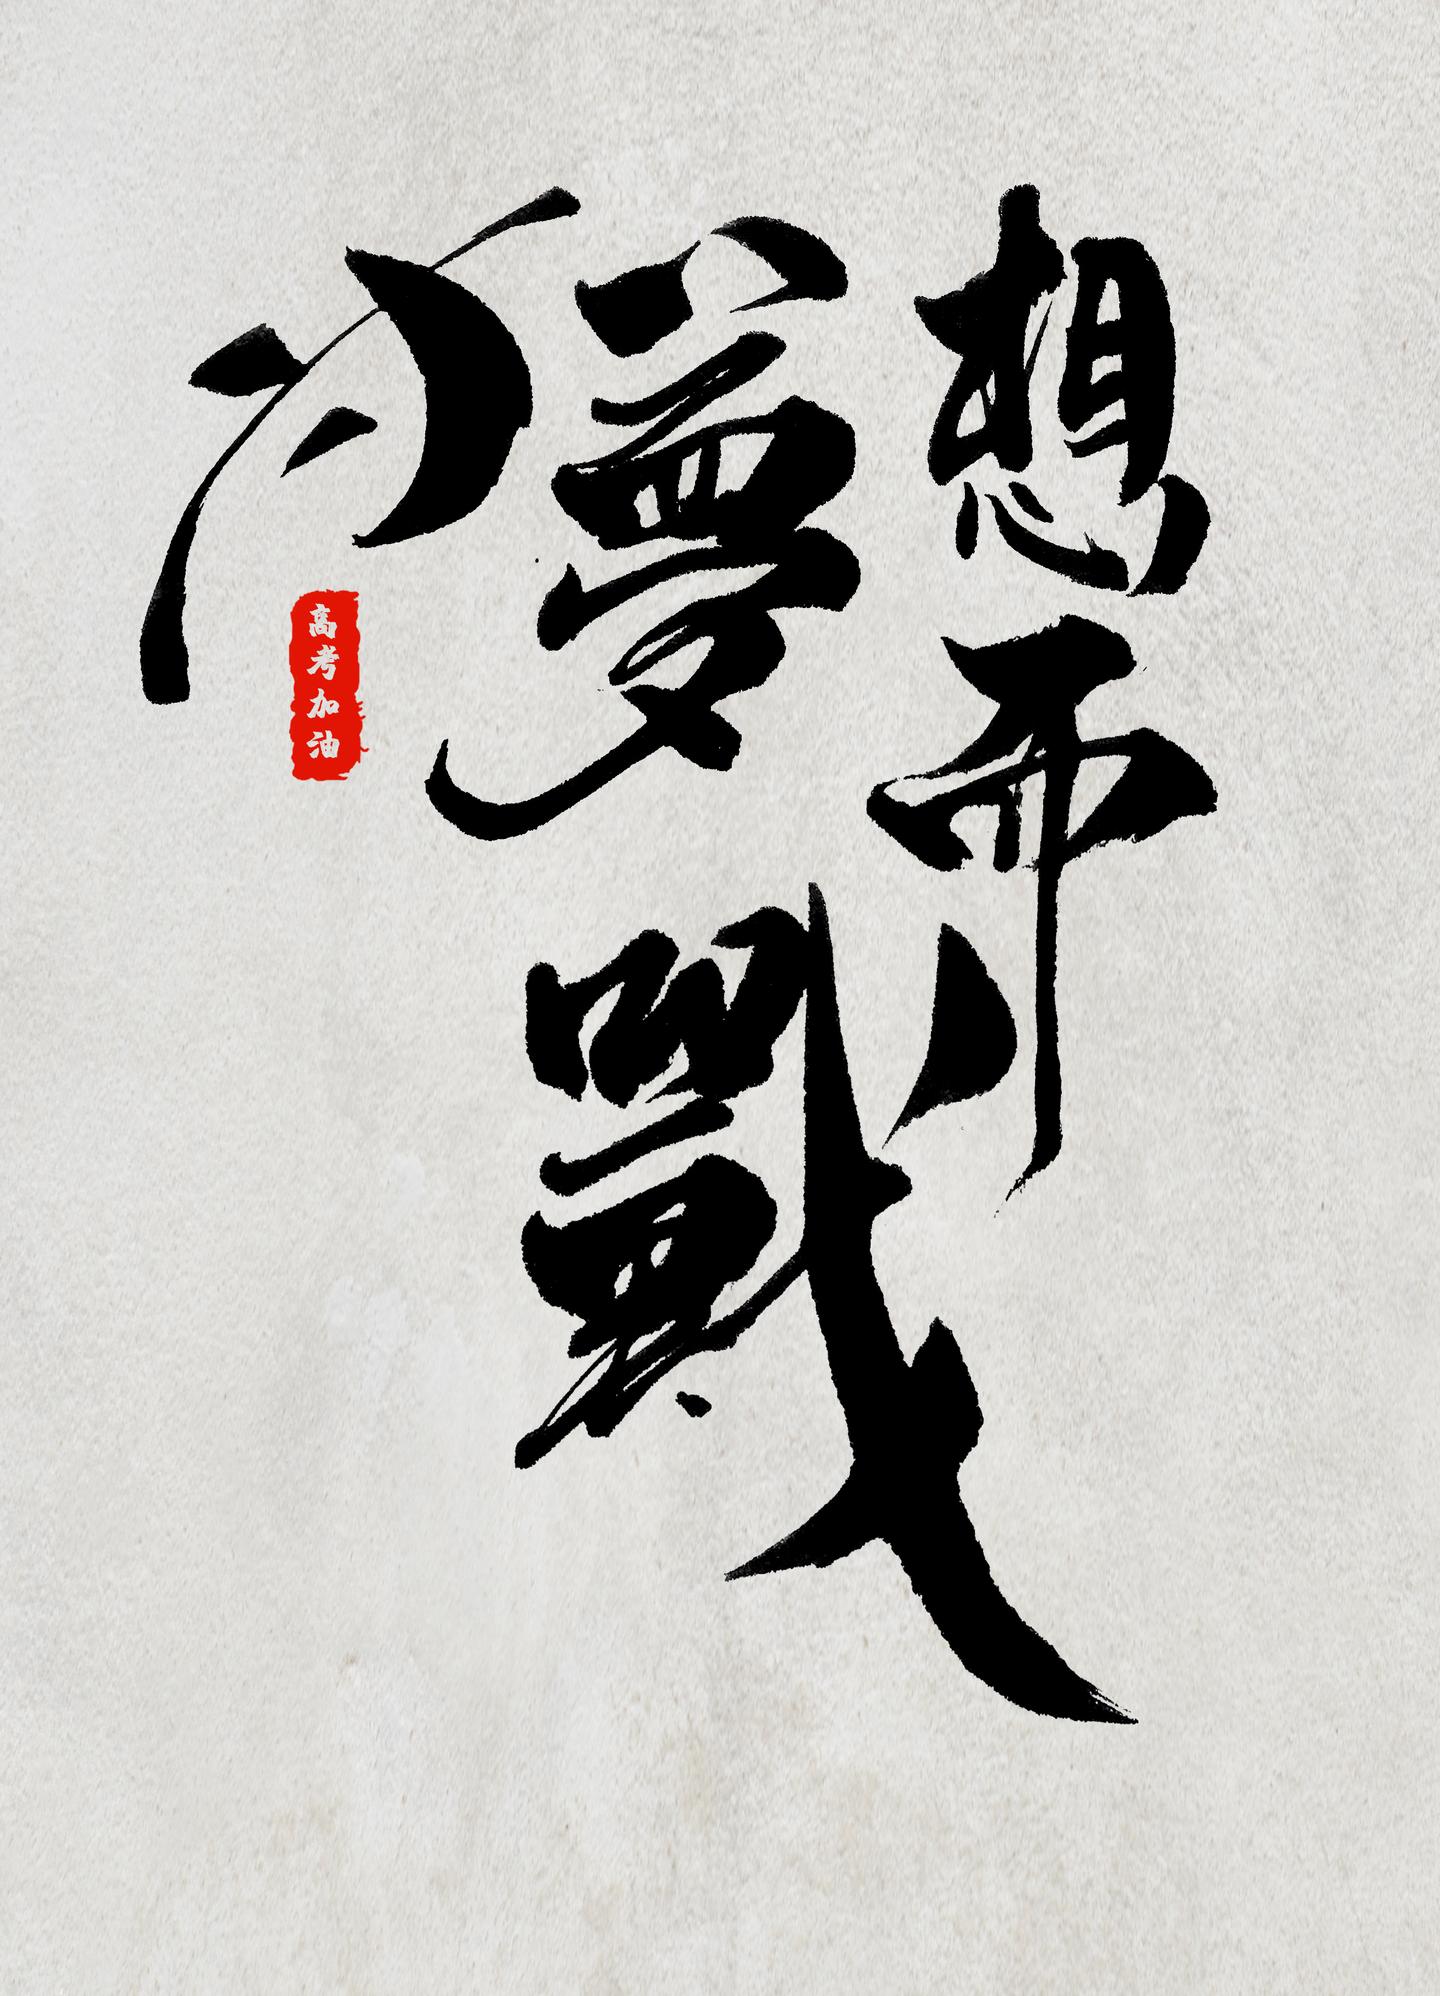 为夢想而戰
高考加油